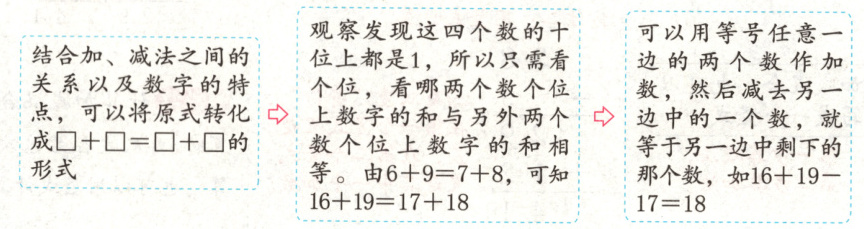 结合加、减法之间的
关系以及数字的特
点，可以将原式转化
成□＋□＝□＋□的
形式
观察发现这四个数的十
位上都是1，所以只需看
个位，看哪两个数个位
上数字的和与另外两个
数个位上数字的和相
等。由6＋9＝7＋8，可知
16＋19＝17＋18
可以用等号任意一
边的两个数作加
数，然后减去另一
边中的一个数，就
等于另一边中剩下的
那个数，如16＋19－
17＝18